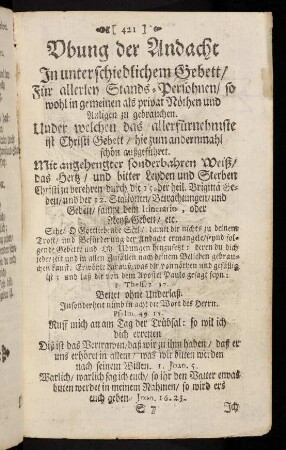 [ 421 ]
Vbung der Andacht
In unterschiedlichem Gebett /
Für allerley Stands-Persohnen / so
wohl in gemeinen als privat Nöthen und
Anligen zu gebrauchen.
Under welchen das allerfürnehmste
ist Christi Gebett / hie zum andernmahl
schön außgeführt.
Mit angehengter sonderbahren Weiß /
das Hertz / und bitter Leyden und Sterben
Christi zu verehren durch die 15. der heil. Brigittä Ge-
bett / und der 12. Stationen / Betrachtungen / und
Gebett / sampt dem Itinerario, oder
Reyß-Gebett / etc.
Sihe / O Gottliebende Seel / damit dir nichts zu deinem
Trost / und Beförderung der Andacht ermangele /
gende Gebetter und Ubungen deren du dich
jederzeit und in allen Zufällen nach deinem Belieben gebrau-
chen kanst.
und laß dir von dem Apostel Paulo gesagt seyn:
1. Thess. 5. 17.
Bettet ohne Underlaß.
Insonderheit nimb in acht die Wort des Herrn.
Psalm. 49. 15.
Ruff mich an am Tag der Trübsal: so wil ich
dich erretten
Diß ist das Vertrawen / daß wir zu ihm haben / daß er
uns erhöret in allem / was wir bitten werden
nach seinem Willen. 1. Joan. 5.
Warlich / warlich sag ich euch / so ihr den Vatter etwas
bitten werdet in meinem Nahmen / so wird ers
euch geben. Joan. 16. 23.
Ich